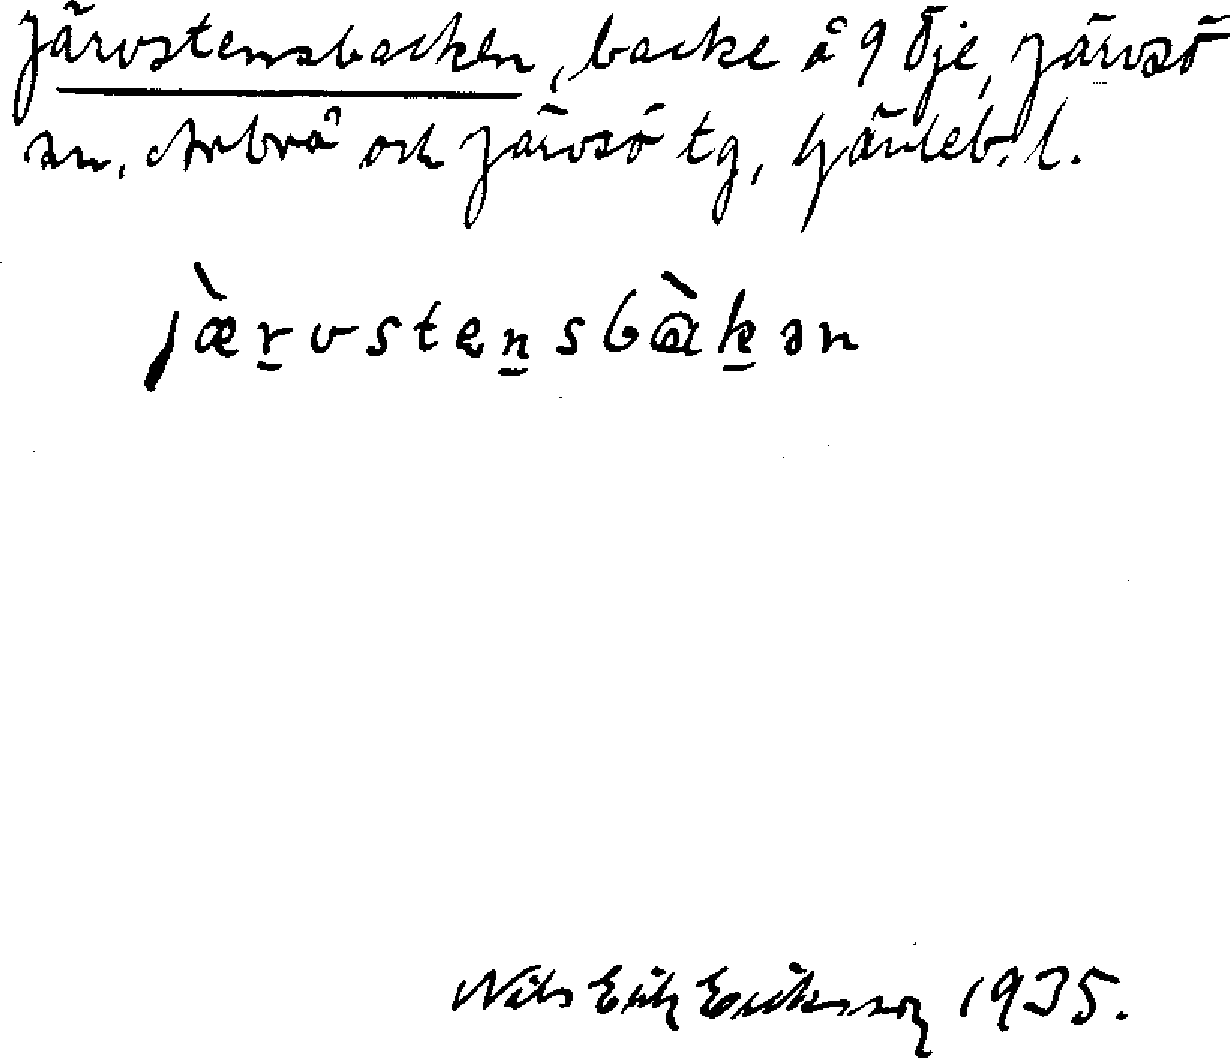 Järvstensbacken, backe å 9 Öje, Järvsö
sn, Arbrå och Järvsö tg, Gävleb. l.
jæ̀r̲vsten̲sbɑ̀k̲ən
Nils Erik Eriksson 1935.